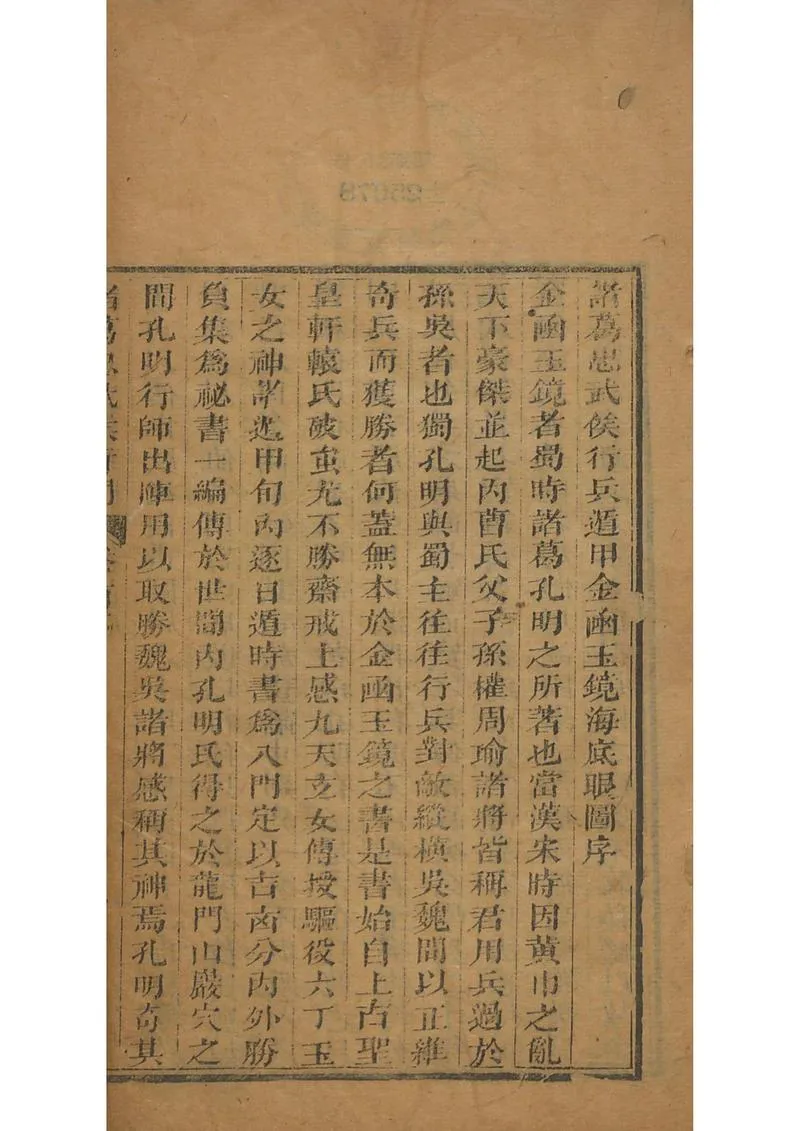 諸葛忠武侯行兵遁甲金函玉鏡海底眼圖序
金函玉鏡者蜀時諸葛孔明之所著也當漢末時因黃巾之亂
天下豪傑並起內曹氏父子孫權周瑜諸將皆稱君用兵過於
孫吳者也獨孔明與蜀主往往行兵對敵縱橫吳魏間以正維
奇兵而獲勝者何蓋無本於金函玉鏡之書是書始自上古聖
皇軒轅氏破蚩尤不勝齋戒上感九天玄女傳授驅役六丁玉
女之神諸遁甲旬內逐日遁時書為八門定以吉凶分內外勝
負集為祕書一編傳於世間內孔明氏得之於龍門山巖穴之
間孔明行師出陣用以取勝魏吳諸將感稱其神焉孔明奇其
25078